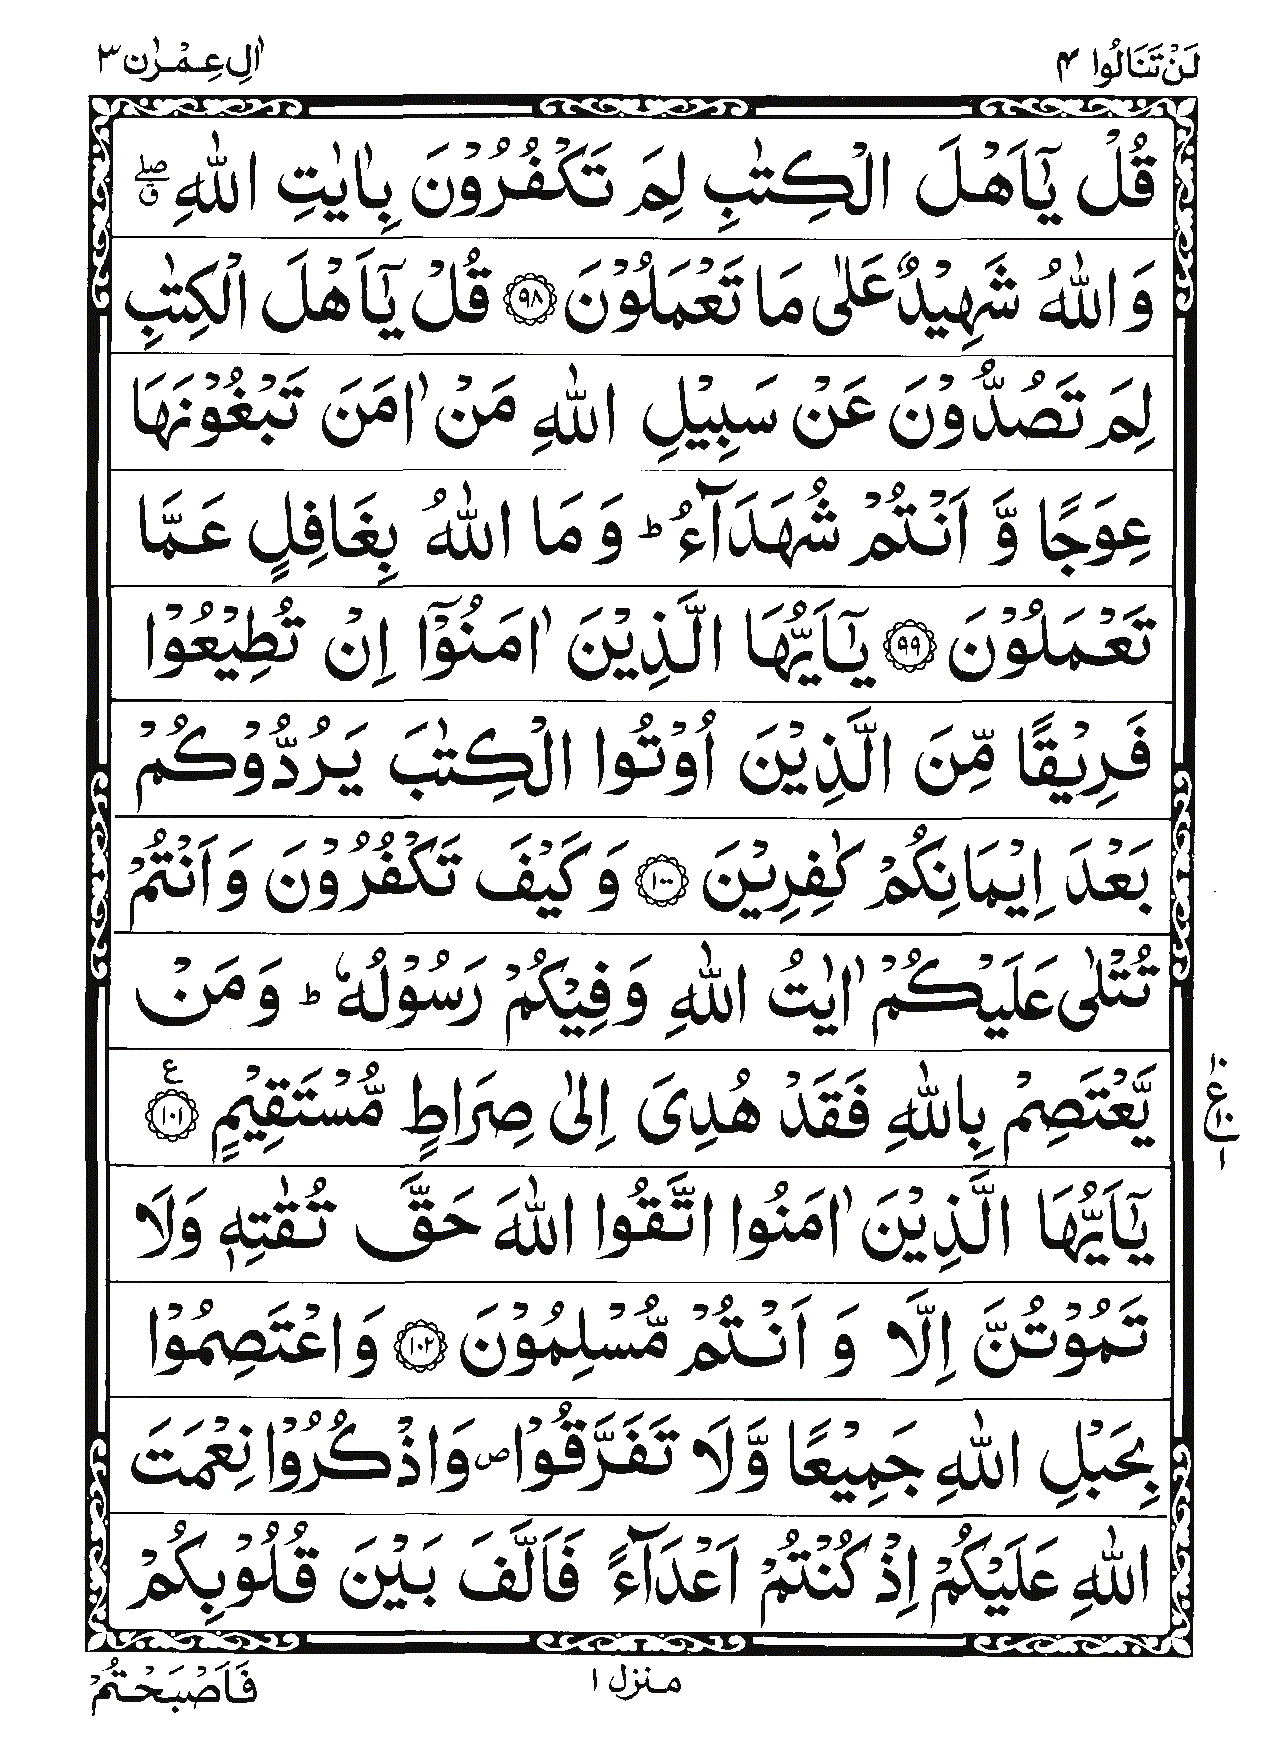 لَنْ تَنَالُوا ۴
اٰلِ عِمْرٰن ۳
قُلْ يٰۤاَهْلَ الْكِتٰبِ لِمَ تَكْفُرُوْنَ بِاٰيٰتِ اللّٰهِ ۖق
وَ اللّٰهُ شَهِيْدٌ عَلٰى مَا تَعْمَلُوْنَ ﴿۹۸﴾ قُلْ يٰۤاَهْلَ الْكِتٰبِ
لِمَ تَصُدُّوْنَ عَنْ سَبِيْلِ اللّٰهِ مَنْ اٰمَنَ تَبْغُوْنَهَا
عِوَجًا وَّ اَنْتُمْ شُهَدَآءُ ؕ وَ مَا اللّٰهُ بِغَافِلٍ عَمَّا
تَعْمَلُوْنَ ﴿۹۹﴾ يٰۤاَيُّهَا الَّذِيْنَ اٰمَنُوْۤا اِنْ تُطِيْعُوْا
فَرِيْقًا مِّنَ الَّذِيْنَ اُوْتُوا الْكِتٰبَ يَرُدُّوْكُمْ
بَعْدَ اِيْمَانِكُمْ كٰفِرِيْنَ ﴿۱۰۰﴾ وَ كَيْفَ تَكْفُرُوْنَ وَ اَنْتُمْ
تُتْلٰى عَلَيْكُمْ اٰيٰتُ اللّٰهِ وَ فِيْكُمْ رَسُوْلُهٗ ؕ وَ مَنْ
يَّعْتَصِمْ بِاللّٰهِ فَقَدْ هُدِىَ اِلٰى صِرَاطٍ مُّسْتَقِيْمٍ ﴿۱۰۱﴾ ع
۱۰
ع ۱۰
۱
يٰۤاَيُّهَا الَّذِيْنَ اٰمَنُوا اتَّقُوا اللّٰهَ حَقَّ تُقٰتِهٖ وَلَا
تَمُوْتُنَّ اِلَّا وَ اَنْتُمْ مُّسْلِمُوْنَ ﴿۱۰۲﴾ وَ اعْتَصِمُوْا
بِحَبْلِ اللّٰهِ جَمِيْعًا وَّلَا تَفَرَّقُوْا ص وَ اذْكُرُوْا نِعْمَتَ
اللّٰهِ عَلَيْكُمْ اِذْ كُنْتُمْ اَعْدَآءً فَاَلَّفَ بَيْنَ قُلُوْبِكُمْ
منزل ۱
فَاَصْبَحْتُمْ